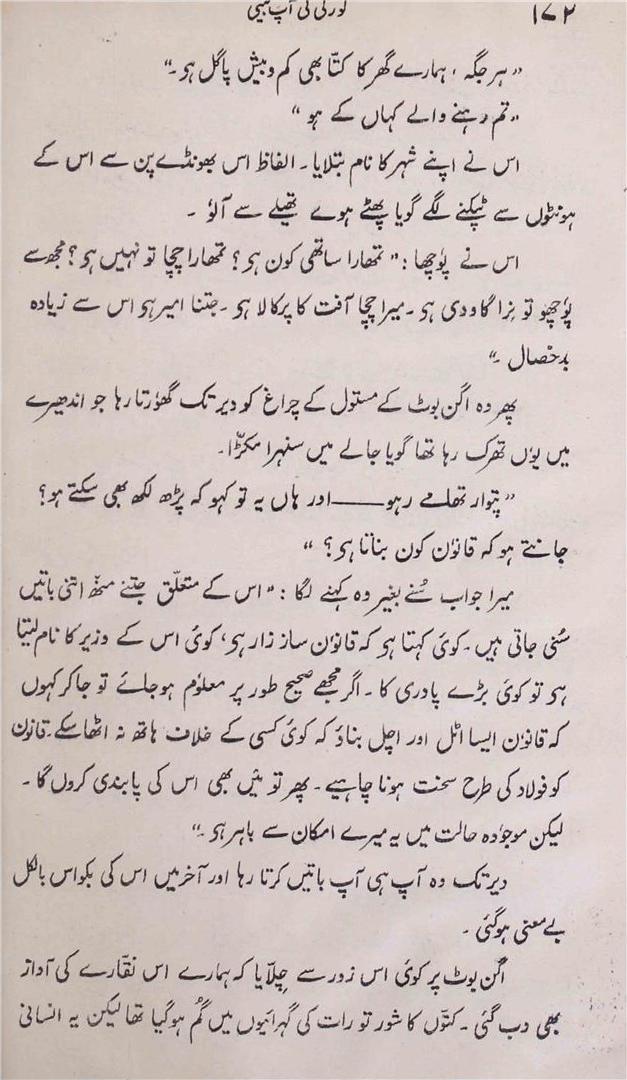 ۱۷۲ گورکی کی آپ بیتی
"ہر جگہ، ہمارے گھر کا کتّا بھی کم و بیش پاگل ہو۔"
"تم رہنے والے کہاں کے ہو"
اس نے اپنے شہر کا نام بتلایا۔ الفاظ اس بھونڈے پن سے اس کے
ہونٹوں سے ٹپکنے لگے گویا پھٹے ہوے تھیلے سے آلؤ۔
اس نے پؤچھا: "تمھارا ساتھی کون ہو؟ تمھارا چچا تو نہیں ہو؟ مجھ سے
پؤچھو تو نِرا گاودی ہو۔ میرا چچا آفت کا پرکالا ہو۔ جتنا امیر ہو اس سے زیادہ
بدخصال۔"
پھر وہ اگن بوٹ کے مستول کے چراغ کو دیر تک گھؤرتا رہا جو اندھیرے
میں یوٗں تھرک رہا تھا گویا جالے میں سنہرا مکڑا۔
"پتوار تھامے رہو —— اور ہاں یہ تو کہو کہ پڑھ لکھ بھی سکتے ہو؟
جانتے ہو کہ قانوٗن کون بناتا ہو؟"
میرا جواب سُنے بغیر وہ کہنے لگا: "اس کے متعلّق جتنے منھ اتنی باتیں
سُنی جاتی ہیں۔ کوئ کہتا ہو کہ قانوٗن ساز زار ہو، کوئ اس کے وزیر کا نام لیتا
ہو تو کوئ بڑے پادری کا۔ اگر مجھے صحیح طور پر معلوٗم ہو جائے تو جا کر کہوں
کہ قانوٗن ایسا اٹل اور اچل بناؤ کہ کوئ کسی کے خلاف ہاتھ نہ اٹھا سکے۔ قانوٗن
کو فولاد کی طرح سخت ہونا چاہیے۔ پھر تو مَیں بھی اس کی پابندی کروں گا۔
لیکن موجوٗدہ حالت میں یہ میرے امکان سے باہر ہو۔"
دیر تک وہ آپ ہی آپ باتیں کرتا رہا اور آخر میں اس کی بکواس بالکل
بے معنی ہوگئی۔
اگن بوٹ پر کوئ اس زور سے چِلّایا کہ ہمارے اس نقّارے کی آواز
بھی دب گئی۔ کتّوں کا شور تو رات کی گہرائیوں میں گُم ہوگیا تھا لیکن یہ انسانی